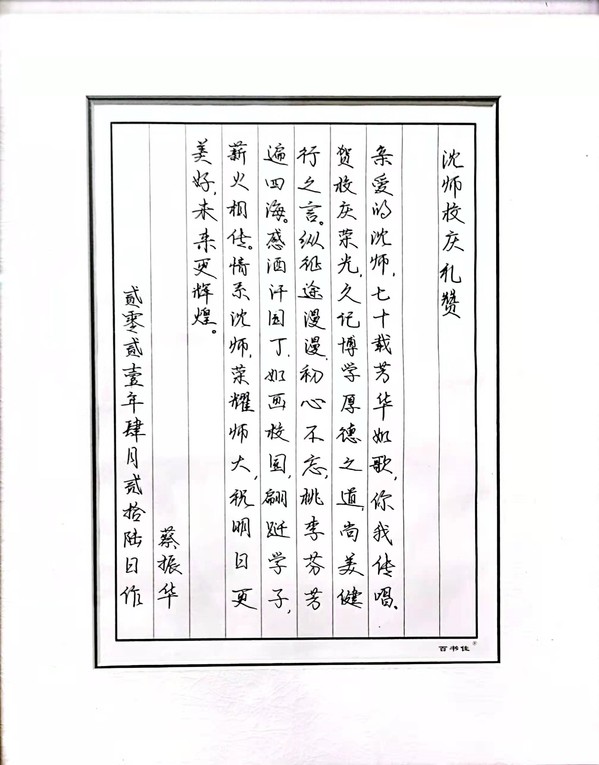 沈师校庆礼赞
亲爱的沈师，七十载芳华如歌，你我传唱、
贺校庆荣光，久记博学厚德之道，尚美健
行之言。纵征途漫漫，初心不忘，桃李芬芳
遍四海。感洒汗园丁，如画校园，翩跹学子，
薪火相传。情系沈师，荣耀师大，祝明日更
美好，未来更辉煌。
蔡振华
贰零贰壹年肆月贰拾陆日作
百书佳